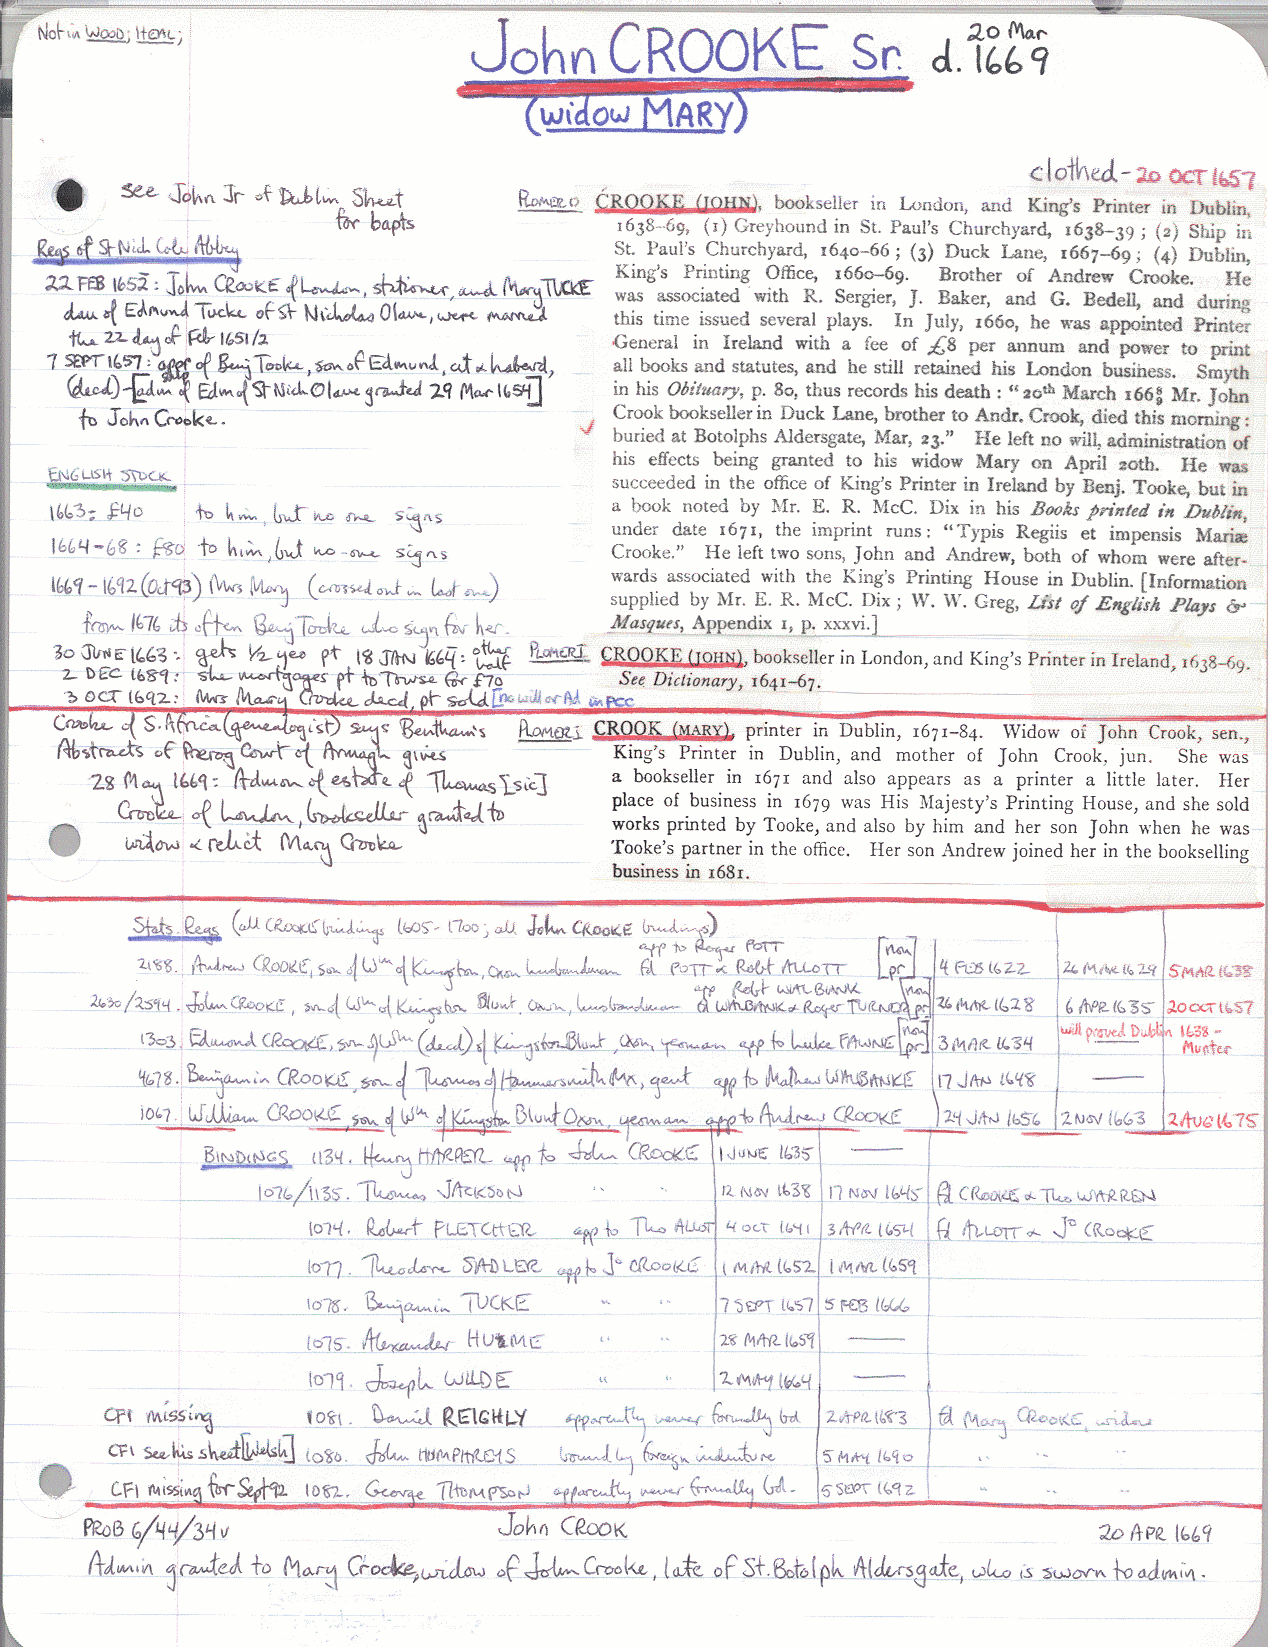 Not in WOOD; HEAL;
John CROOKE Sr. d. 20 Mar 1669
(widow MARY)
clothed - 20 OCT 1657
see John Jr of Dublin Sheet
for bapts
Regs of St Nich Cole Abbey
22 FEB 1652: John CROOKE of London, stationer, and Mary TUCKE
dau of Edmund Tucke of St Nicholas Olave, were married
the 22 day of Feb 1651/2
7 SEPT 1657: app of Benj Tooke, son of Edmund, cit & haberd,
(decd) - [admship of Edm of St Nich Olave granted 29 Mar 1654]
to John Crooke.
ENGLISH STOCK
1663: £40 to him, but no one signs
1664-68: £80 to him, but no-one signs
1669-1692 (Oct 93) Mrs Mary (crossed out in last one)
from 1676 its often Benj Tooke who sign for her.
30 JUNE 1663: gets ½ yeo pt 18 JAN 1664: other half
2 DEC 1689: she mortgages pt to Towse for £70
3 OCT 1692: Mrs Mary Crooke decd, pt sold [no will or Ad in PCC
PLOMER CROOKE (JOHN), bookseller in London, and King's Printer in Dublin,
1638-69, (1) Greyhound in St. Paul's Churchyard, 1638-39; (2) Ship in
St. Paul's Churchyard, 1640-66; (3) Duck Lane, 1667-69; (4) Dublin,
King's Printing Office, 1660-69. Brother of Andrew Crooke. He
was associated with R. Sergier, J. Baker, and G. Bedell, and during
this time issued several plays. In July, 1660, he was appointed Printer
General in Ireland with a fee of £8 per annum and power to print
all books and statutes, and he still retained his London business. Smyth
in his Obituary, p. 80, thus records his death: "20th March 166 8/9 Mr. John
Crook bookseller in Duck Lane, brother to Andr. Crook, died this morning:
buried at Botolphs Aldersgate, Mar, 23." He left no will, administration of
his effects being granted to his widow Mary on April 20th. He was
succeeded in the office of King's Printer in Ireland by Benj. Tooke, but in
a book noted by Mr. E. R. McC. Dix in his Books printed in Dublin,
under date 1671, the imprint runs: "Typis Regiis et impensis Mariæ
Crooke." He left two sons, John and Andrew, both of whom were after-
wards associated with the King's Printing House in Dublin. [Information
supplied by Mr. E. R. McC. Dix; W. W. Greg, List of English Plays &
Masques, Appendix 1, p. xxxvi.]
PLOMER I CROOKE (JOHN), bookseller in London, and King's Printer in Ireland, 1638-69.
See Dictionary, 1641-67.
Crooke of S. Africa (genealogist) says Bentham's
Abstracts of Prerog Court of Armagh gives
28 May 1669: Admon of estate of Thomas [sic]
Crooke of London, bookseller granted to
widow & relict Mary Crooke
PLOMER I CROOK (MARY), printer in Dublin, 1671-84. Widow of John Crook, sen.,
King's Printer in Dublin, and mother of John Crook, jun. She was
a bookseller in 1671 and also appears as a printer a little later. Her
place of business in 1679 was His Majesty's Printing House, and she sold
works printed by Tooke, and also by him and her son John when he was
Tooke's partner in the office. Her son Andrew joined her in the bookselling
business in 1681.
Stats. Regs (all CROOKE bindings 1605-1700; all John CROOKE bindings)
2188. Andrew CROOKE, son of Wm of Kingston, Oxon husbandman app to Roger POTT fd POTT & Robt ALLOTT [non pr] 4 FEB 1622 26 MAR 1629 5 MAR 1638
2630/2594. John CROOKE, son of Wm of Kingston Blunt, Oxon, husbandman app Robt WALBANK fd WALBANK & Roger TURNOR [non pr] 26 MAR 1628 6 APR 1635 20 OCT 1657
1303. Edmond CROOKE, son of Wm (decd) of Kingston Blunt, Oxon, yeoman app to Luke FAWNE [non pr] 3 MAR 1634 will proved Dublin 1638 - Munter
4678. Benjamin CROOKE, son of Thomas of Hammersmith Mx, gent app to Mathew WALBANKE 17 JAN 1648 —
1067. William CROOKE, son of Wm of Kingston Blunt Oxon, yeoman app to Andrew CROOKE 24 JAN 1656 2 NOV 1663 2 AUG 1675
BINDINGS 1134. Henry HARPER app to John CROOKE 1 JUNE 1635 —
1076/1135. Thomas JACKSON " " 12 NOV 1638 17 NOV 1645 fd CROOKE & Tho WARREN
1074. Robert FLETCHER app to Tho ALLOT 4 OCT 1641 3 APR 1654 fd ALLOTT & Jo CROOKE
1077. Theodore SADLER app to Jo CROOKE 1 MAR 1652 1 MAR 1659
1078. Benjamin TUCKE " " 7 SEPT 1657 5 FEB 1666
1075. Alexander HULME " " 28 MAR 1659 —
1079. Joseph WILDE " " 2 MAY 1664 —
CFI missing 1081. Daniel REIGHLY apparently never formally bd 2 APR 1683 fd Mary CROOKE, widow
CFI see his sheet [Welsh] 1080. John HUMPHREYS bound by foreign indenture 5 MAY 1690 " "
CFI missing for Sept 92 1082. George THOMPSON apparently never formally bd. 5 SEPT 1692 " "
PROB 6/44/34v John CROOK 20 APR 1669
Admin granted to Mary Crooke, widow of John Crooke, late of St. Botolph Aldersgate, who is sworn to admin.